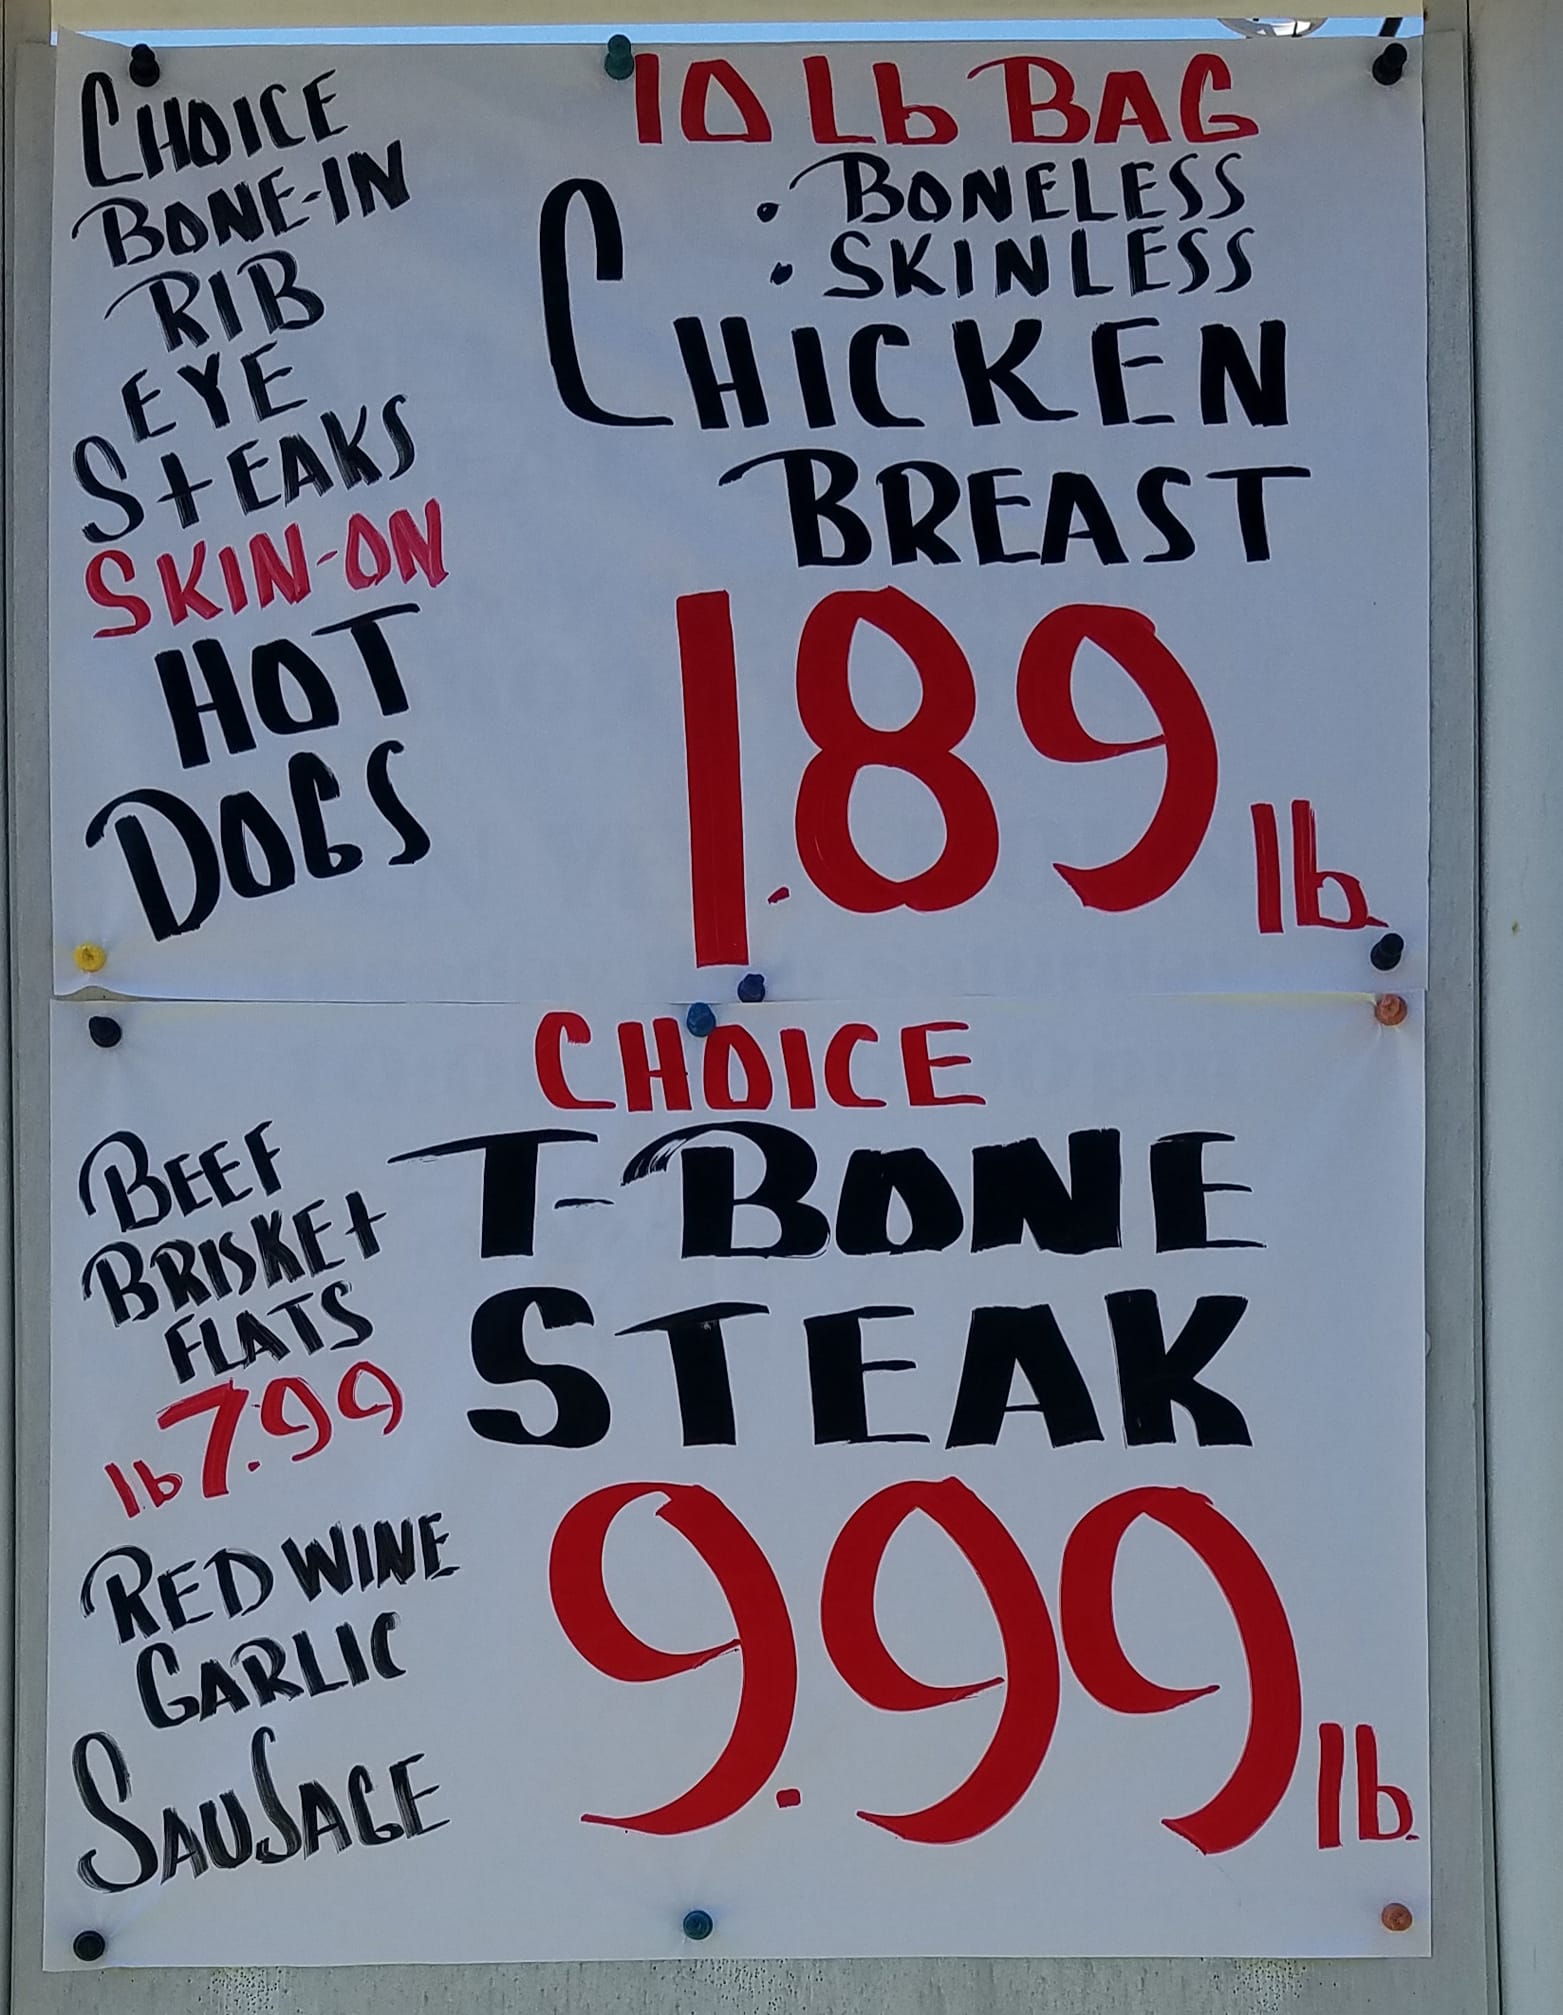 CHOICE
BONE-IN
RIB
EYE
STEAKS
SKIN-ON
HOT
DOGS
10 Lb BAG
• BONELESS
• SKINLESS
CHICKEN
BREAST
1.89 lb.
BEEF
BRISKET
FLATS
lb 7.99
RED WINE
GARLIC
SAUSAGE
CHOICE
T-BONE
STEAK
9.99 lb.